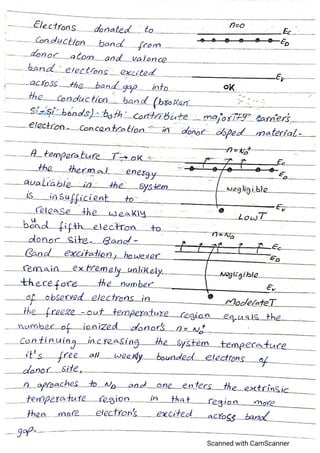 Electrons donated to
Conduction band from
donor atom and valance
band electrons excited
across the band gap into
the conduction band (broken
Si-Si bonds) both contribute majority carriers
electron concentration in donor doped material.
n=0
Ec
ED
Ev
0K
A temperature T→0K
the thermal energy
available in the system
is insufficient to
release the weakly
bond fifth electron to
donor site. Band-
Band excitation, however
remain extremely unlikely
therefore the number
of observed electrons in
n=ND+
Ec
ED
Negligible
Ev
Low T
n=ND
Ec
ED
Negligible
Ev
Moderate T
the freeze-out temperature region equals the
number of ionized donor's n=ND+
Continuing increasing the system temperature
it's free all weekly bounded electrons of
donor site,
n aproaches to ND and one enters the extrinsic
temperature region in that region more
then more electron's excited across band
gap.
Scanned with CamScanner